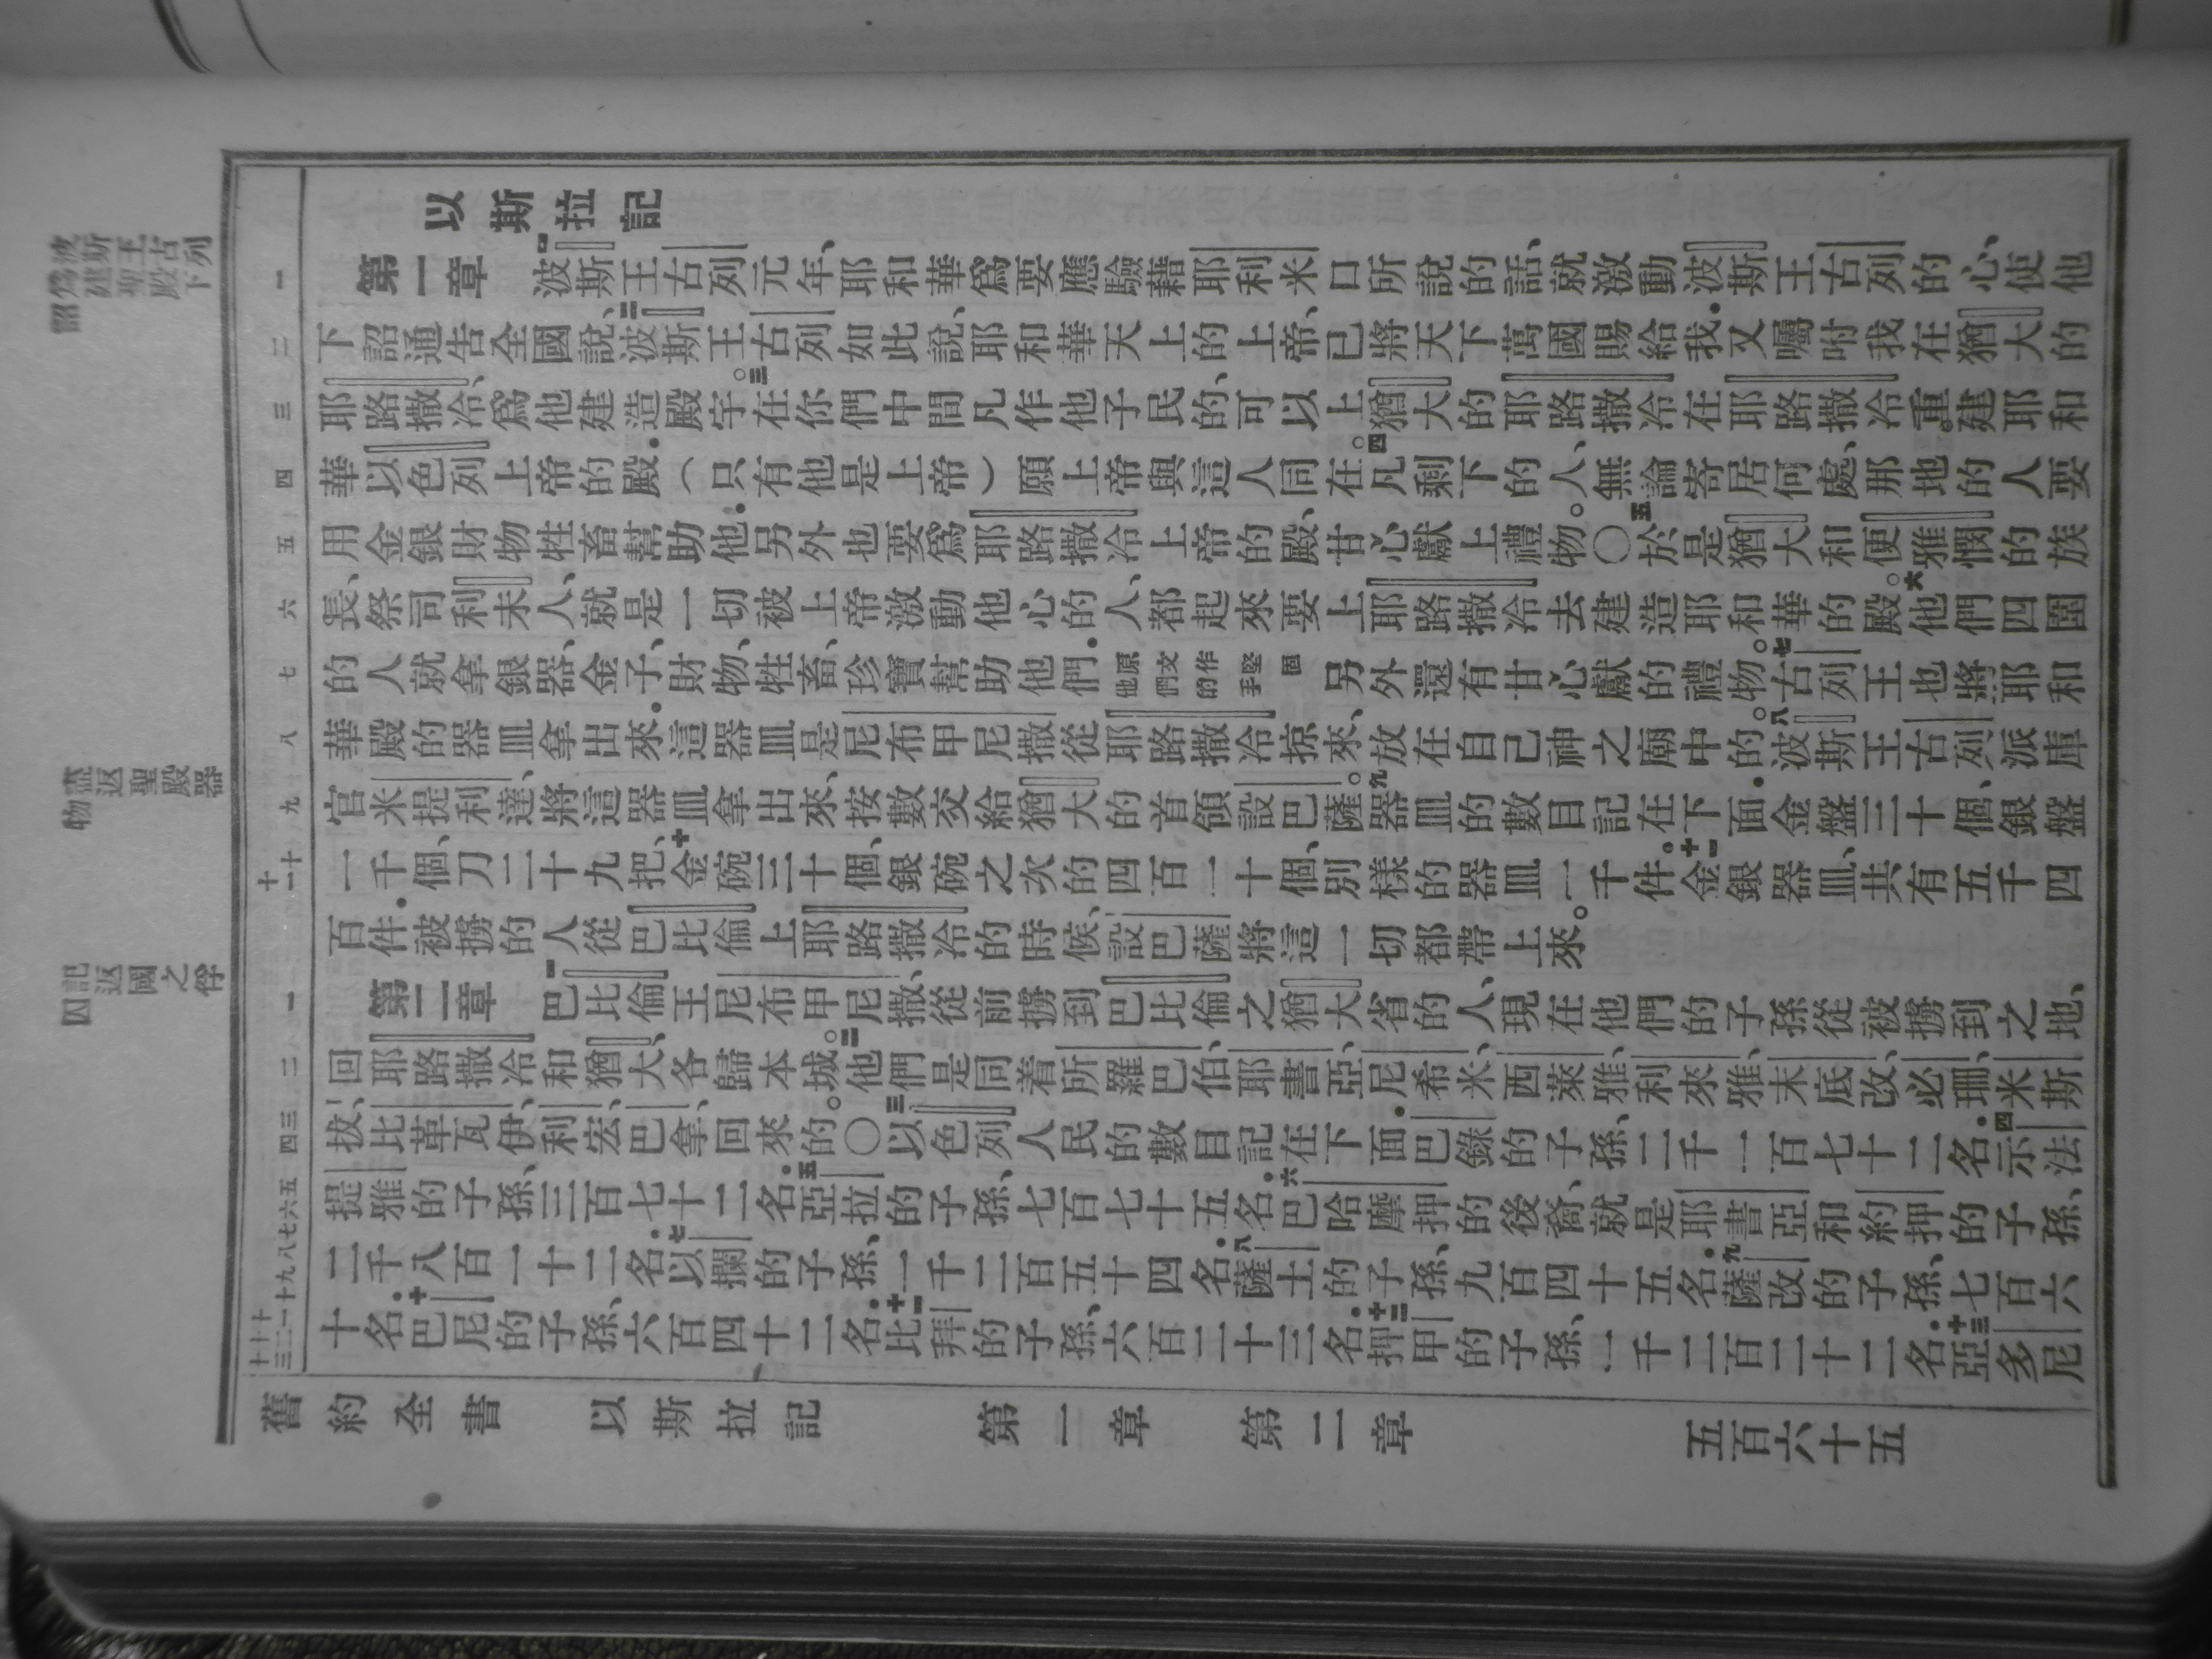 以斯拉記
第一章 一波斯王古列元年、耶和華爲要應驗藉耶利米口所說的話、就激動波斯王古列的心、使他
下詔通告全國說、二波斯王古列如此說、耶和華天上的上帝、已將天下萬國賜給我.又囑咐我在猶大的
耶路撒冷、爲他建造殿宇。三在你們中間凡作他子民的、可以上猶大的耶路撒冷在耶路撒冷重建耶和
華以色列上帝的殿.(只有他是上帝)願上帝與這人同在。四凡剩下的人、無論寄居何處、那地的人要
用金銀財物牲畜幫助他.另外也要爲耶路撒冷上帝的殿、甘心獻上禮物。〇五於是猶大和便雅憫的族
長、祭司利未人、就是一切被上帝激動他心的人、都起來要上耶路撒冷去建造耶和華的殿。六他們四圍
的人就拿銀器、金子、財物、牲畜、珍寶幫助他們.原文作堅固他們的手另外還有甘心獻的禮物。七古列王也將耶和
華殿的器皿拿出來.這器皿是尼布甲尼撒從耶路撒冷掠來、放在自己神之廟中的。八波斯王古列派庫
官米提利達、將這器皿拿出來、按數交給猶大的首領設巴薩。九器皿的數目記在下面.金盤三十個、銀盤
一千個、刀二十九把、十金碗三十個、銀碗之次的四百一十個、別樣的器皿一千件。十一金銀器皿、共有五千四
百件.被擄的人從巴比倫上耶路撒冷的時候、設巴薩將這一切都帶上來。
第二章 一巴比倫王尼布甲尼撒、從前擄到巴比倫之猶大省的人、現在他們的子孫從被擄到之地、
回耶路撒冷和猶大、各歸本城。二他們是同着所羅巴伯、耶書亞、尼希米、西萊雅、利來雅、末底改、必珊、米斯
拔、比革瓦伊、利宏、巴拿、回來的。〇三以色列人民的數目記在下面.巴錄的子孫、二千一百七十二名.四示法
提雅的子孫、三百七十二名.五亞拉的子孫、七百七十五名.六巴哈摩押的後裔、就是耶書亞和約押的子孫、
二千八百一十二名.七以攔的子孫、一千二百五十四名.八薩土的子孫、九百四十五名.九薩改的子孫、七百六
十名.十巴尼的子孫、六百四十二名.十一比拜的子孫、六百二十三名.十二押甲的子孫、一千二百二十二名.十三亞多尼
舊約全書 以斯拉記 第一章 第二章 五百六十五
波斯王古列下
詔爲建聖殿
聖殿器
物盡返
記返國之俘
囚
一 二 三 四 五 六 七 八 九 十 十一 一 二 三 四 五 六 七 八 九 十 十一 十二 十三